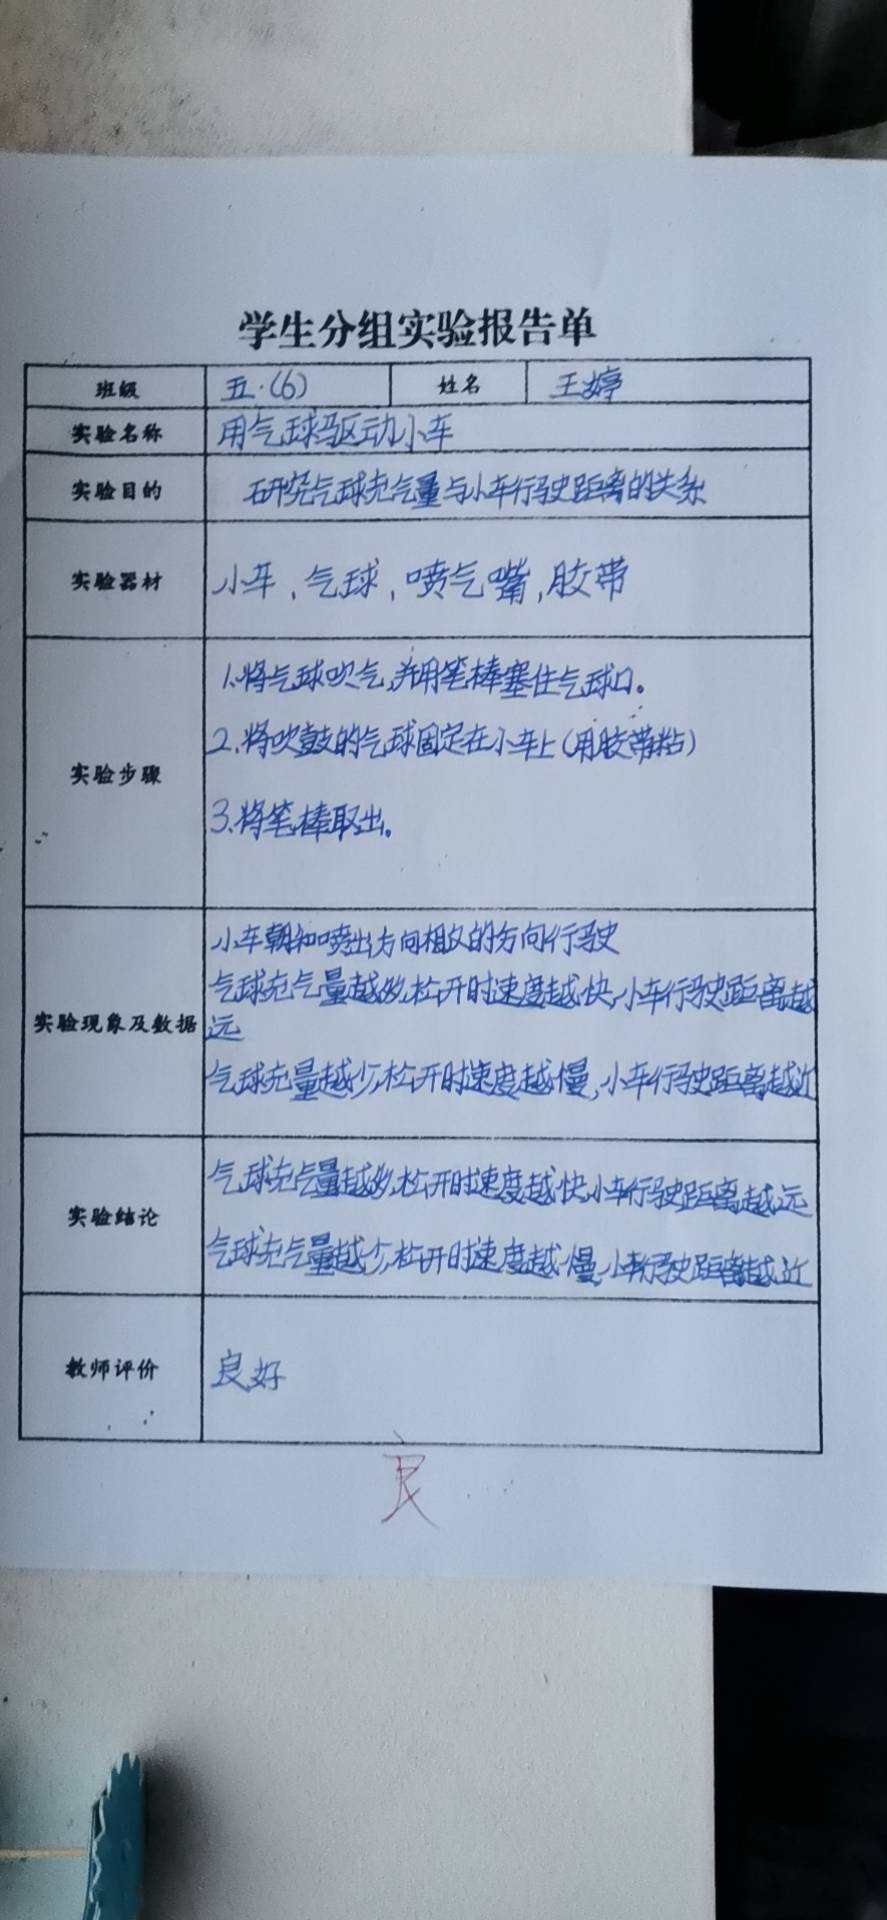 学生分组实验报告单
班级 五.(6) 姓名 王婷
实验名称 用气球驱动小车
实验目的 研究气球充气量与小车行驶距离的关系
实验器材 小车,气球,喷气嘴,胶带
实验步骤
1.将气球吹气,并用笔棒塞住气球口。
2.将吹鼓的气球固定在小车上(用胶带粘)
3.将笔棒取出。
实验现象及数据
小车朝和喷出方向相反的方向行驶
气球充气量越多,松开时速度越快,小车行驶距离越
远
气球充量越少,松开时速度越慢,小车行驶距离越近
实验结论
气球充气量越多,松开时速度越快,小车行驶距离越远
气球充气量越少,松开时速度越慢,小车行驶距离越近
教师评价 良好
良